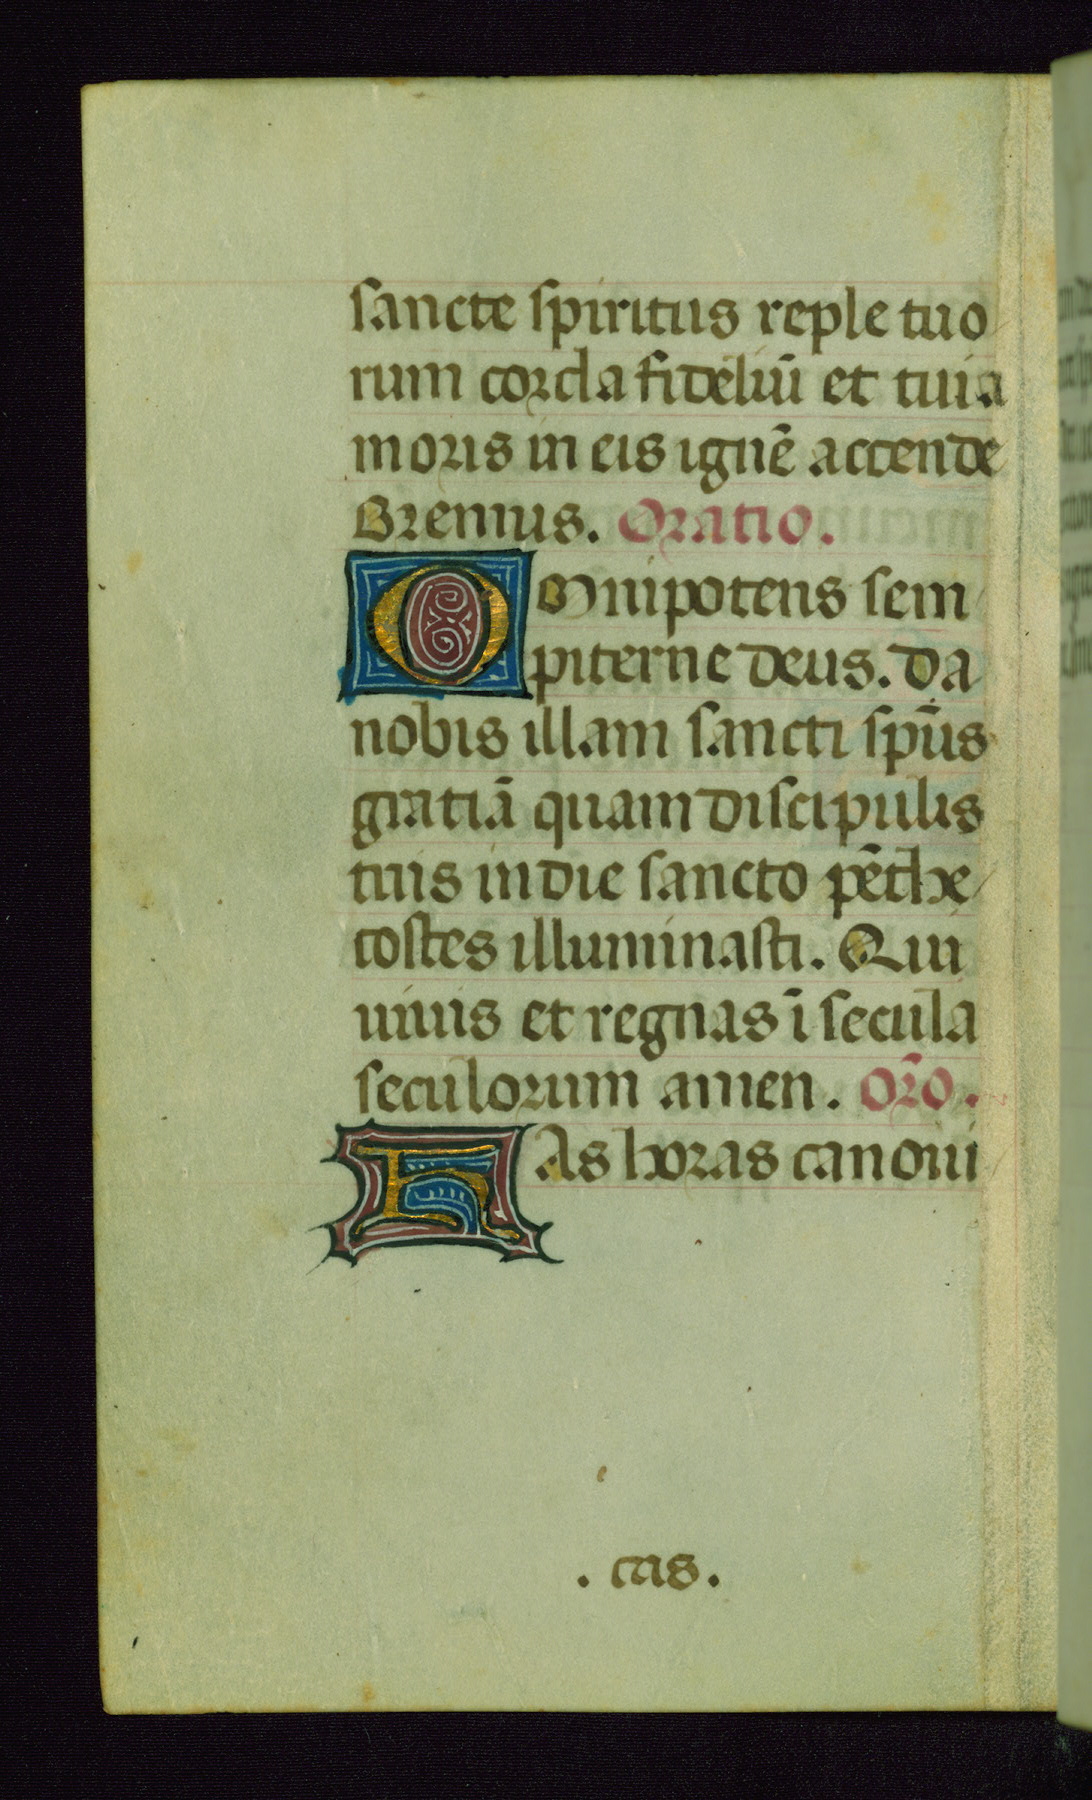 sancte spiritus reple tuo
rum corda fideliū et tui a
moris in eis ignē accende
Oremus. Oratio.
Omnipotens sem
piterne deus. Da
nobis illam sancti sp̄us
gratiā quam discipulis
tuis in die sancto pēthe
costes illuminasti. Qui
uiuis et regnas ī secula
seculorum amen. Or̄o.
Has horas canoni
. cas.